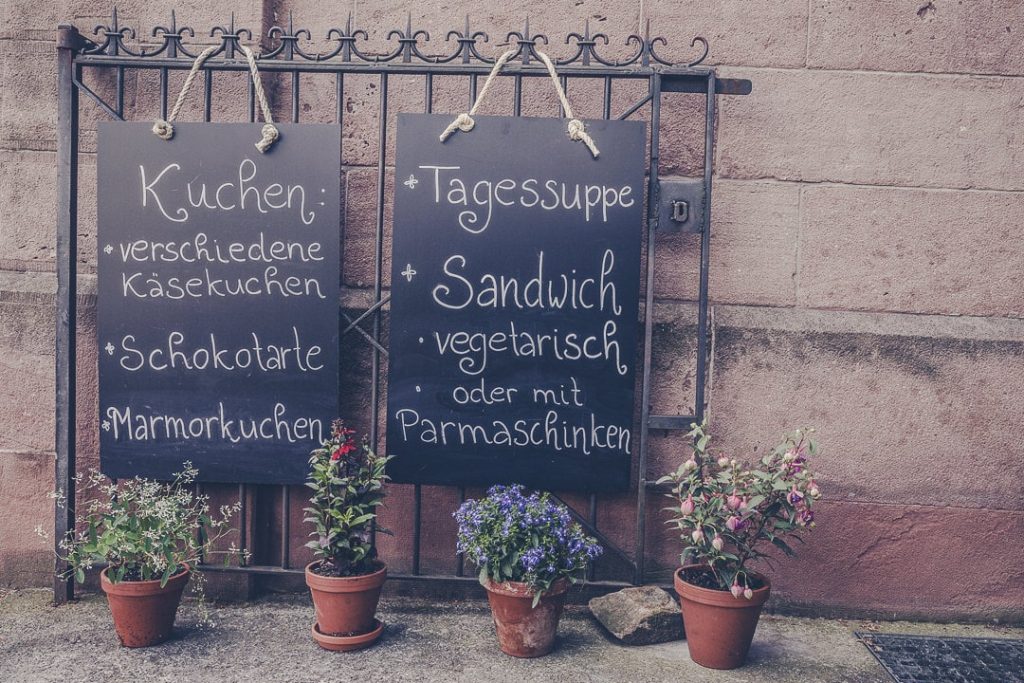 Kuchen:
* verschiedene
Käsekuchen
* Schokotarte
* Marmorkuchen
* Tagessuppe
* Sandwich
· vegetarisch
· oder mit
Parmaschinken